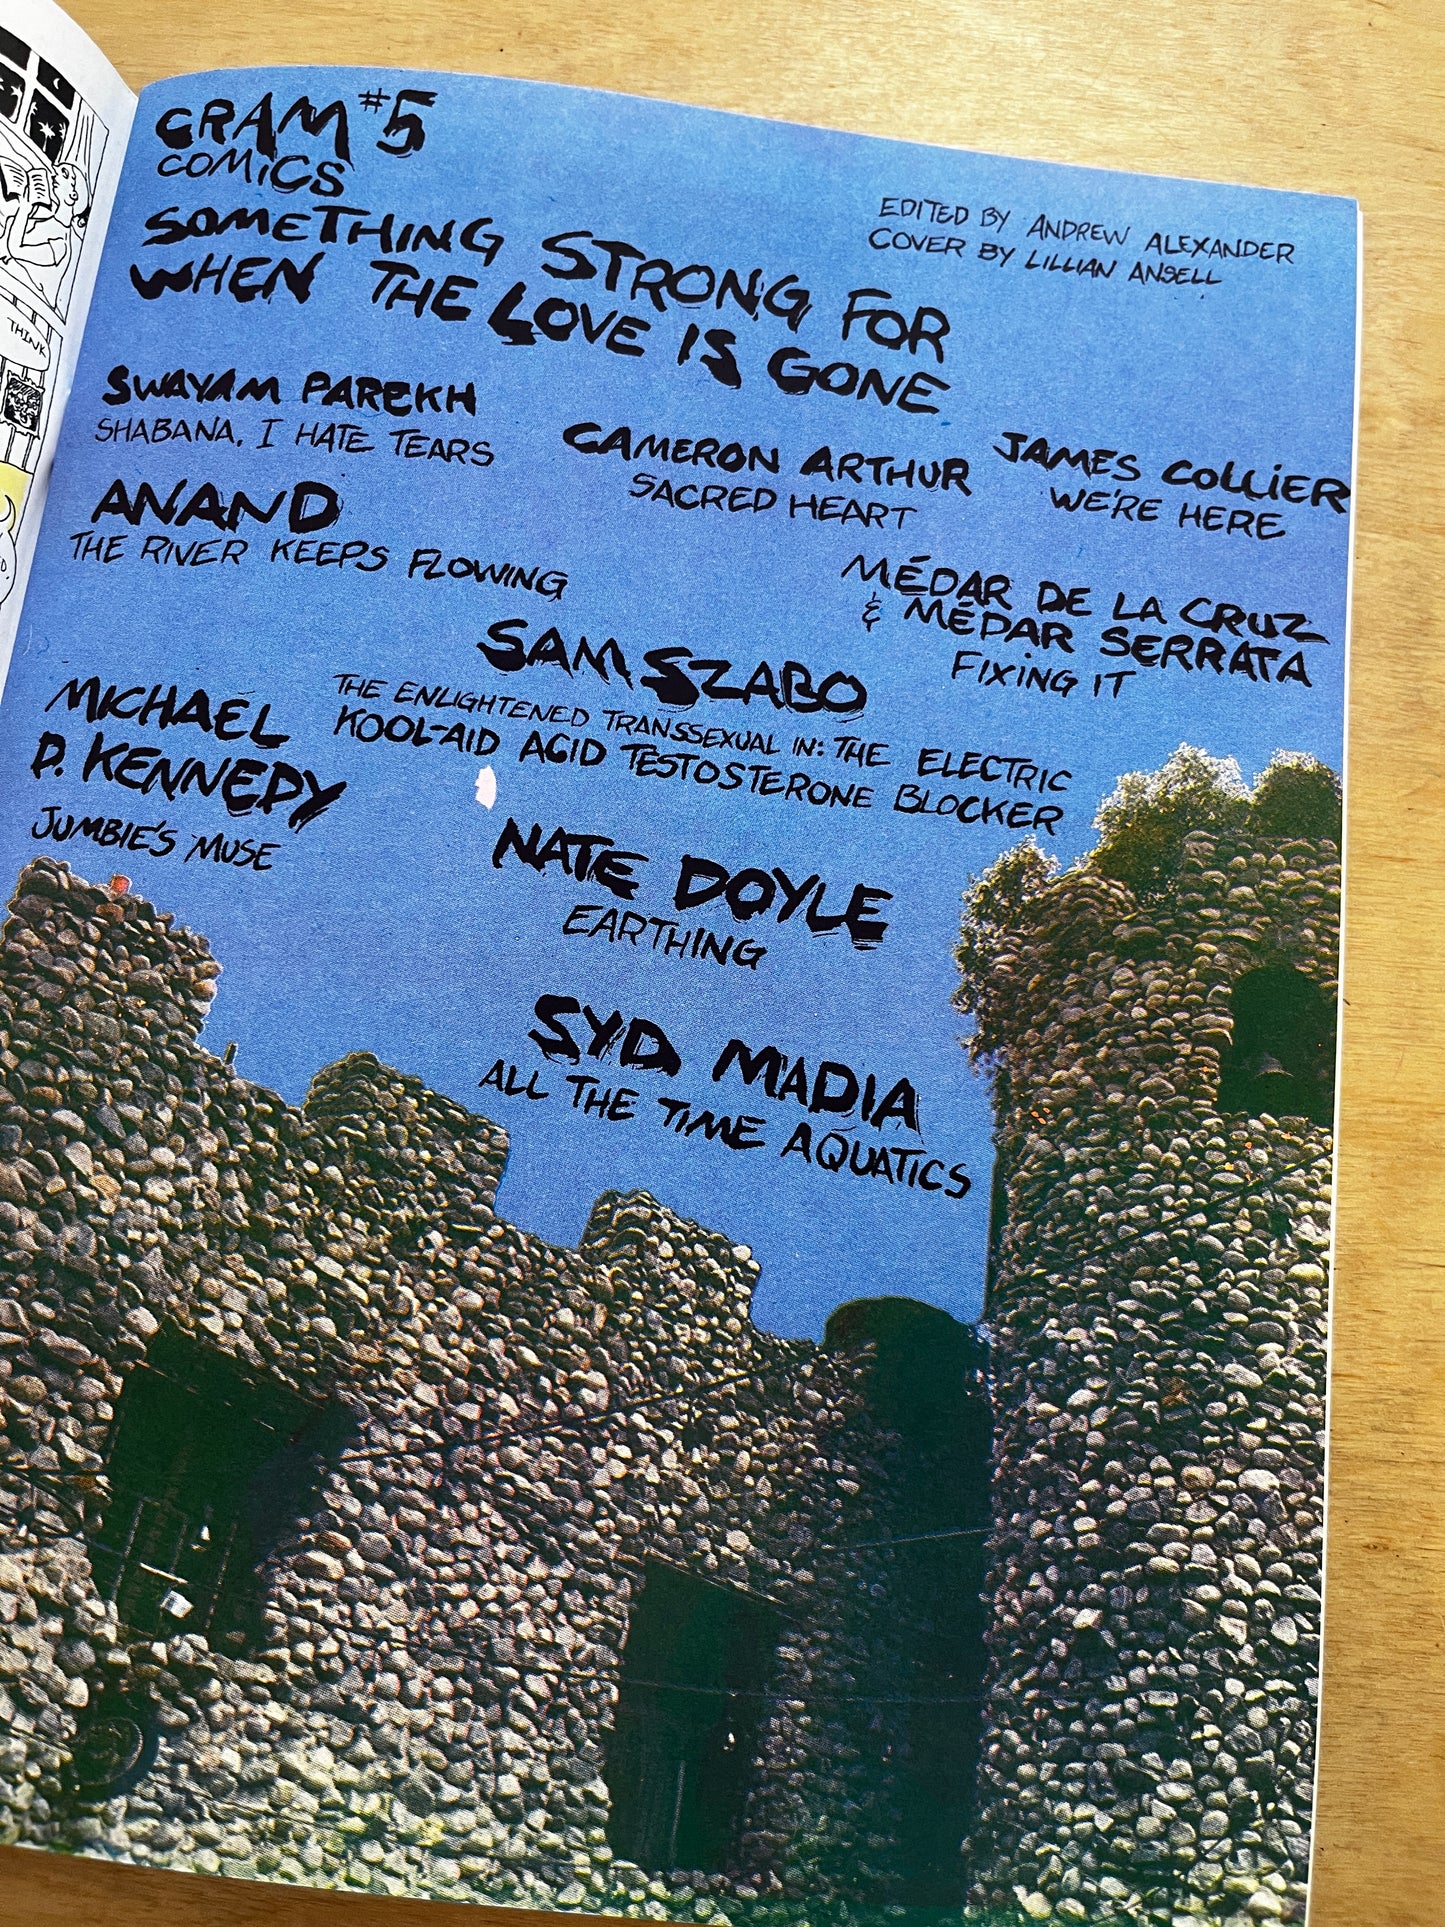 THINK
CRAM #5
COMICS
SOMETHING STRONG FOR
WHEN THE LOVE IS GONE
EDITED BY ANDREW ALEXANDER
COVER BY LILLIAN ANSELL
SWAYAM PAREKH
SHABANA, I HATE TEARS
CAMERON ARTHUR
SACRED HEART
JAMES COLLIER
WE'RE HERE
ANAND
THE RIVER KEEPS FLOWING
MÉDAR DE LA CRUZ
& MÉDAR SERRATA
FIXING IT
SAM SZABO
THE ENLIGHTENED TRANSSEXUAL IN: THE ELECTRIC
KOOL-AID ACID TESTOSTERONE BLOCKER
MICHAEL
D. KENNEDY
JUMBIE'S MUSE
NATE DOYLE
EARTHING
SYD MADIA
ALL THE TIME AQUATICS